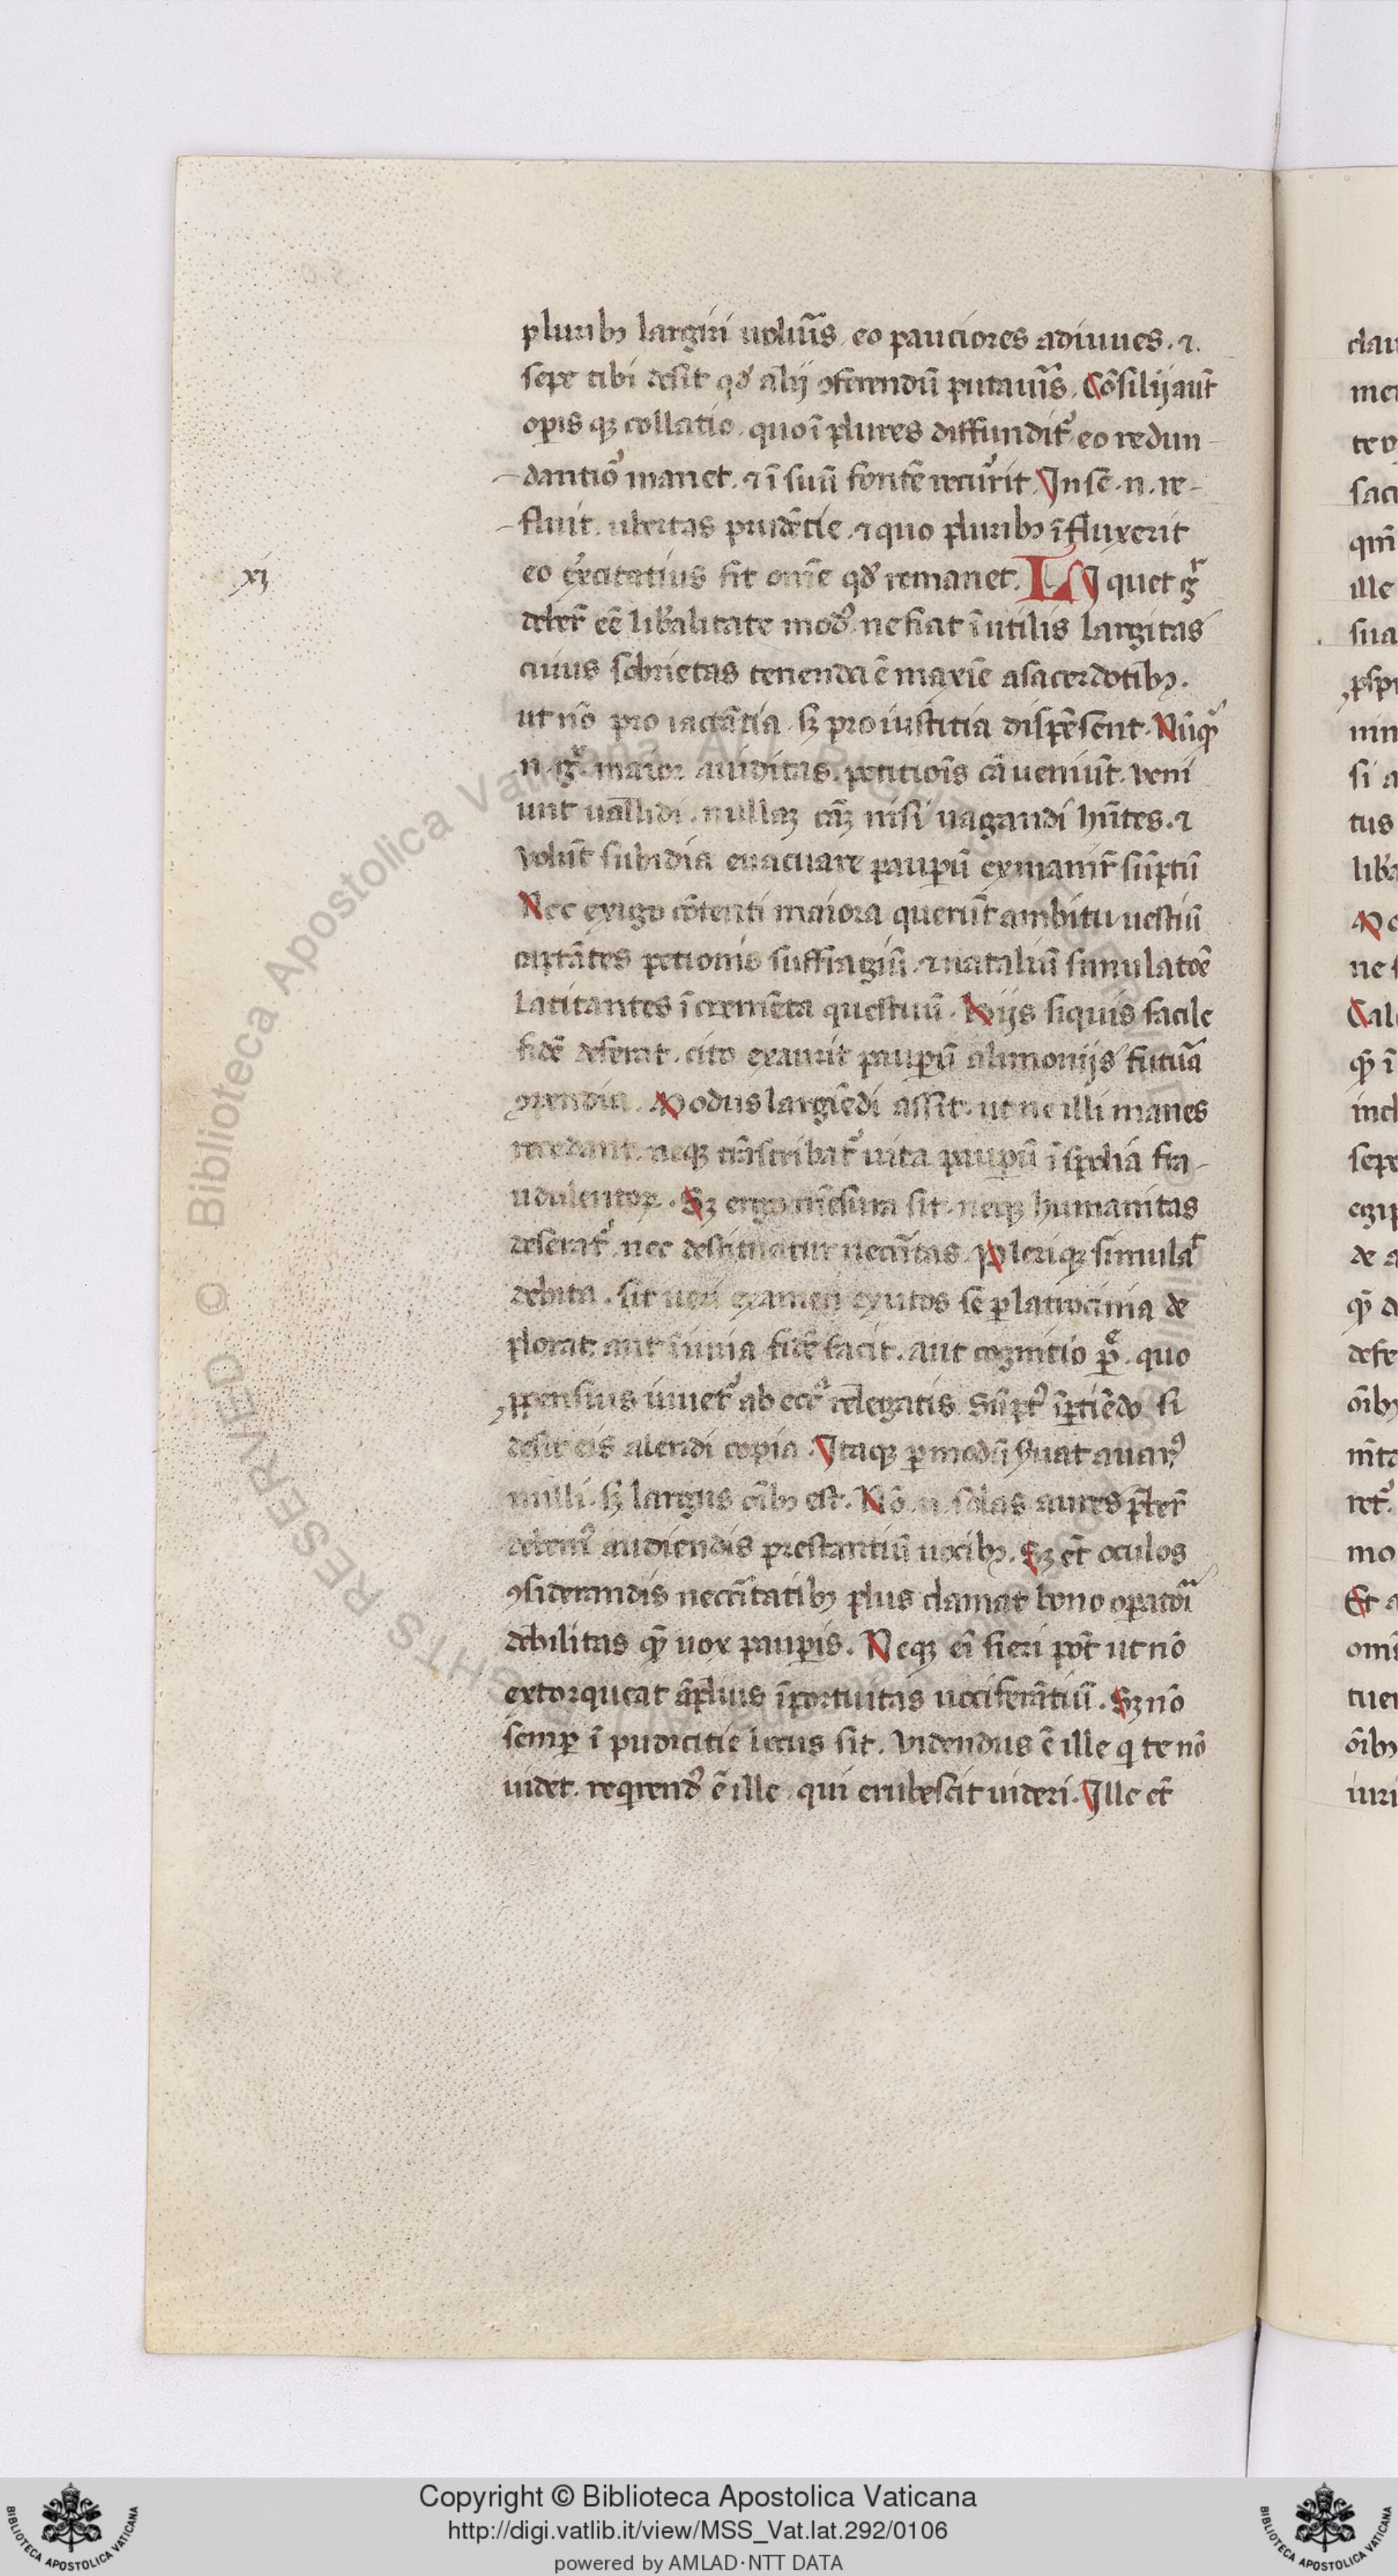 pluribȝ largiri uoluis̃, eo pauciores adiuues. ⁊.
sepe tibi desit qđ alij ꝯferendũ putauis̃. Cõsilij aut̃
opis qȝ collatio. quo ĩ plures diffundit᷑ eo redun-
-dantio᷑ manet. ⁊ ĩ suũ fontẽ recur᷑rit. In se .n. re-
-fluit. ubertas prudẽtie. ⁊ quo pluribȝ ĩfluxerit
xj
eo ex᷑citatius fit om̃e qđ remanet. LIquet gͬ
deber̃ eẽ lib᷑alitate mod᷑ ne fiat ĩutilis largitas
cuius sobrietas tenenda ẽ maxiẽ a sacerdotibȝ.
ut nõ pro iactãtia sȝ pro iustitia dispẽsent. Nũqͣ
.n. gͣ. maior auiditas. petitiois̃ cã ueniũt. veni
unt uallidi. nullaȝ cãȝ nisi uagandi hñtes. ⁊
volũt subidia euacuare pauꝑũ exmanir̃ sũptũ
Nec exigo cõtenti maiora querũt ambitu uestiũ
captãtes petionis suffragiũ. ⁊ nataliũ simulatõe
latitantes ĩcremẽta questuũ. Hijs siquis facile
fidẽ deferat. cito exaurit pauꝑũ alimonijs futuã
ꝯpendia. Modus largiẽdi assit. ut ne illi inanes
recedant. neqȝ trãscribat᷑ uita pauꝑũ ĩ spolia fra-
udulentoꝝ. Sȝ ergo mẽsura sit. neqȝ humanitas
deserat᷑. nec destituatur necc̃itas. Pleriqȝ simulãt
debita. sit ueri examen exutos se ꝑ latrocinia de
plorat. aut ĩiuria fidẽ facit. aut cognitio ꝑͤ. quo
ꝓpensius iuuet᷑ ab eccͣ relegatis sũpt᷑ ĩꝑtiẽdo si
desit eis alendi copia. Itaqȝ ꝑ modũ s᷑uat auar᷑
nulli. sȝ largus oĩbȝ est. Nõ .n. solas aures p̃ber̃
debem᷑ audiendis prestantiũ uocibȝ. Sȝ et̃ oculos
ꝯsiderandis necc̃itatibȝ plus clamat bono oꝑatoͥ
debilitas qͣ uox pauꝑis. Neqȝ ei᷑ fieri pot̃ ut nõ
extorqueat ãplius ĩportuitas uociferãtiũ. Sȝ nõ
semꝑ ĩ pudicitie locus sit. Videndus ẽ ille q te nõ
uidet. reqrend᷑ ẽ ille. qui erubescit uideri. Ille et̃